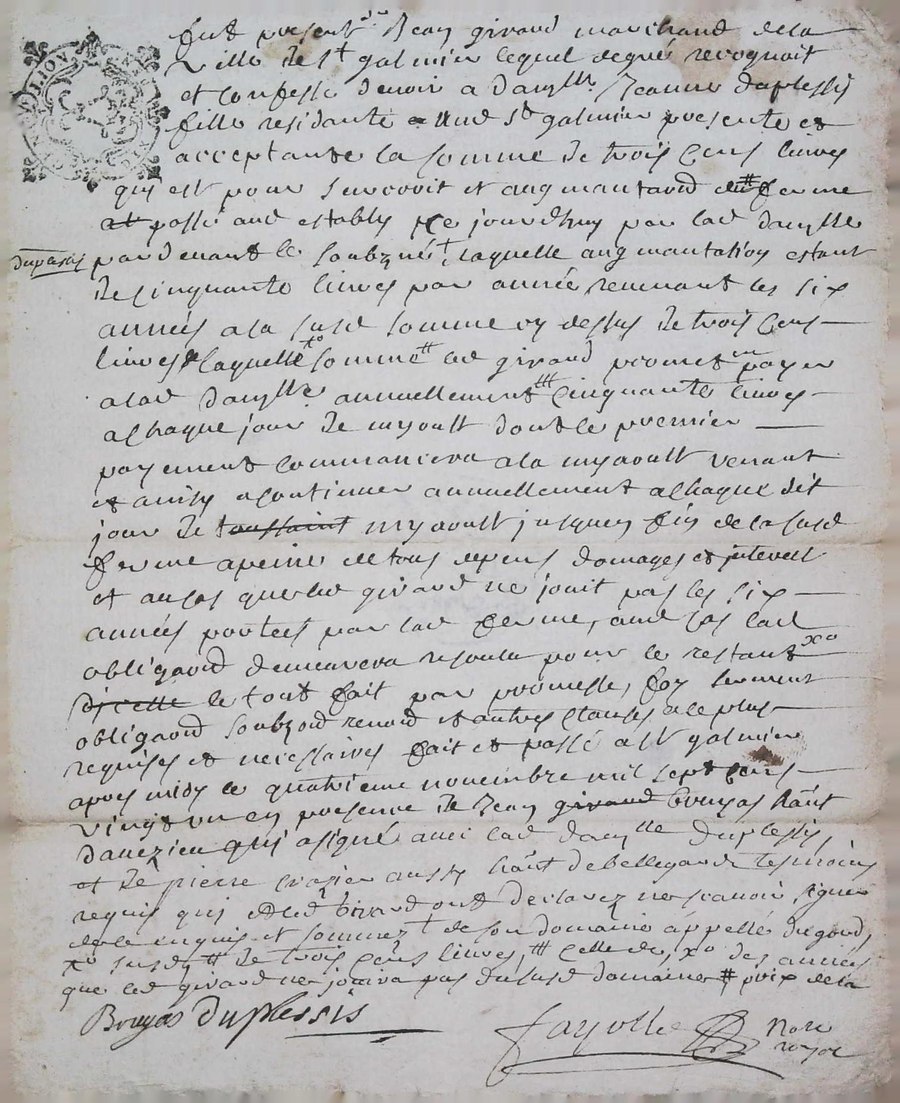 fut present Jean girard marchand dela
ville de st galmier lequel degré recognoit
et confesse devoir a damlle Jeanne duplessis
fille residante aud st galmier presente et
acceptante la somme de trois cens livres
qui est pour surcroit et augmantaõn du # ferme
et passé aud estably ce jourdhuy par lad damlle
pardevant le soubzné † laquelle augmantation estant
duplessis
de cinquante livres par année, revenant les six
années a la susd somme cy dessus de trois cens
livres de laquelle xo somme # led girard promet payer
a lad damlle annuellement ### cinquante livres
a chaque jour de myoult dont le premier
payement commancera a la myaoult venant
et ainsy a continuer annuellement a chaque dit
jour de toussaint myaoult jusques fin de la susd
ferme a peine de tous depens domages et interest
et au cas que led girard ne jouit pas les six
années portées par lad ferme, aud cas lad
obligaõn demeurera resoulu pour le restant xo
dicelle le tout fait par promesse, foy serment
obligaõn soubzõn renoõn et autres clauses a ce plus
requises et necessaires fait et passé a st galmier
apres midy le quatrieme novembre mil sept cens
vingt un en presence de Jean girard bruyas hãnt
dauezieu qui a signé avec lad damlle duplessis,
et de pierre crozier aussy hãnt de bellegarde tesmoins
requis qui et led girard ont declarez ne scavoir signer
de ce enquis et sommez † de son domaine appellé du gond,
xo susd # de trois cens livres, ### celle de, xo des années
que led girard ne jouira pas du susd domaine # prix de la
Bruyas duplessis
fayolle
Nore
royal